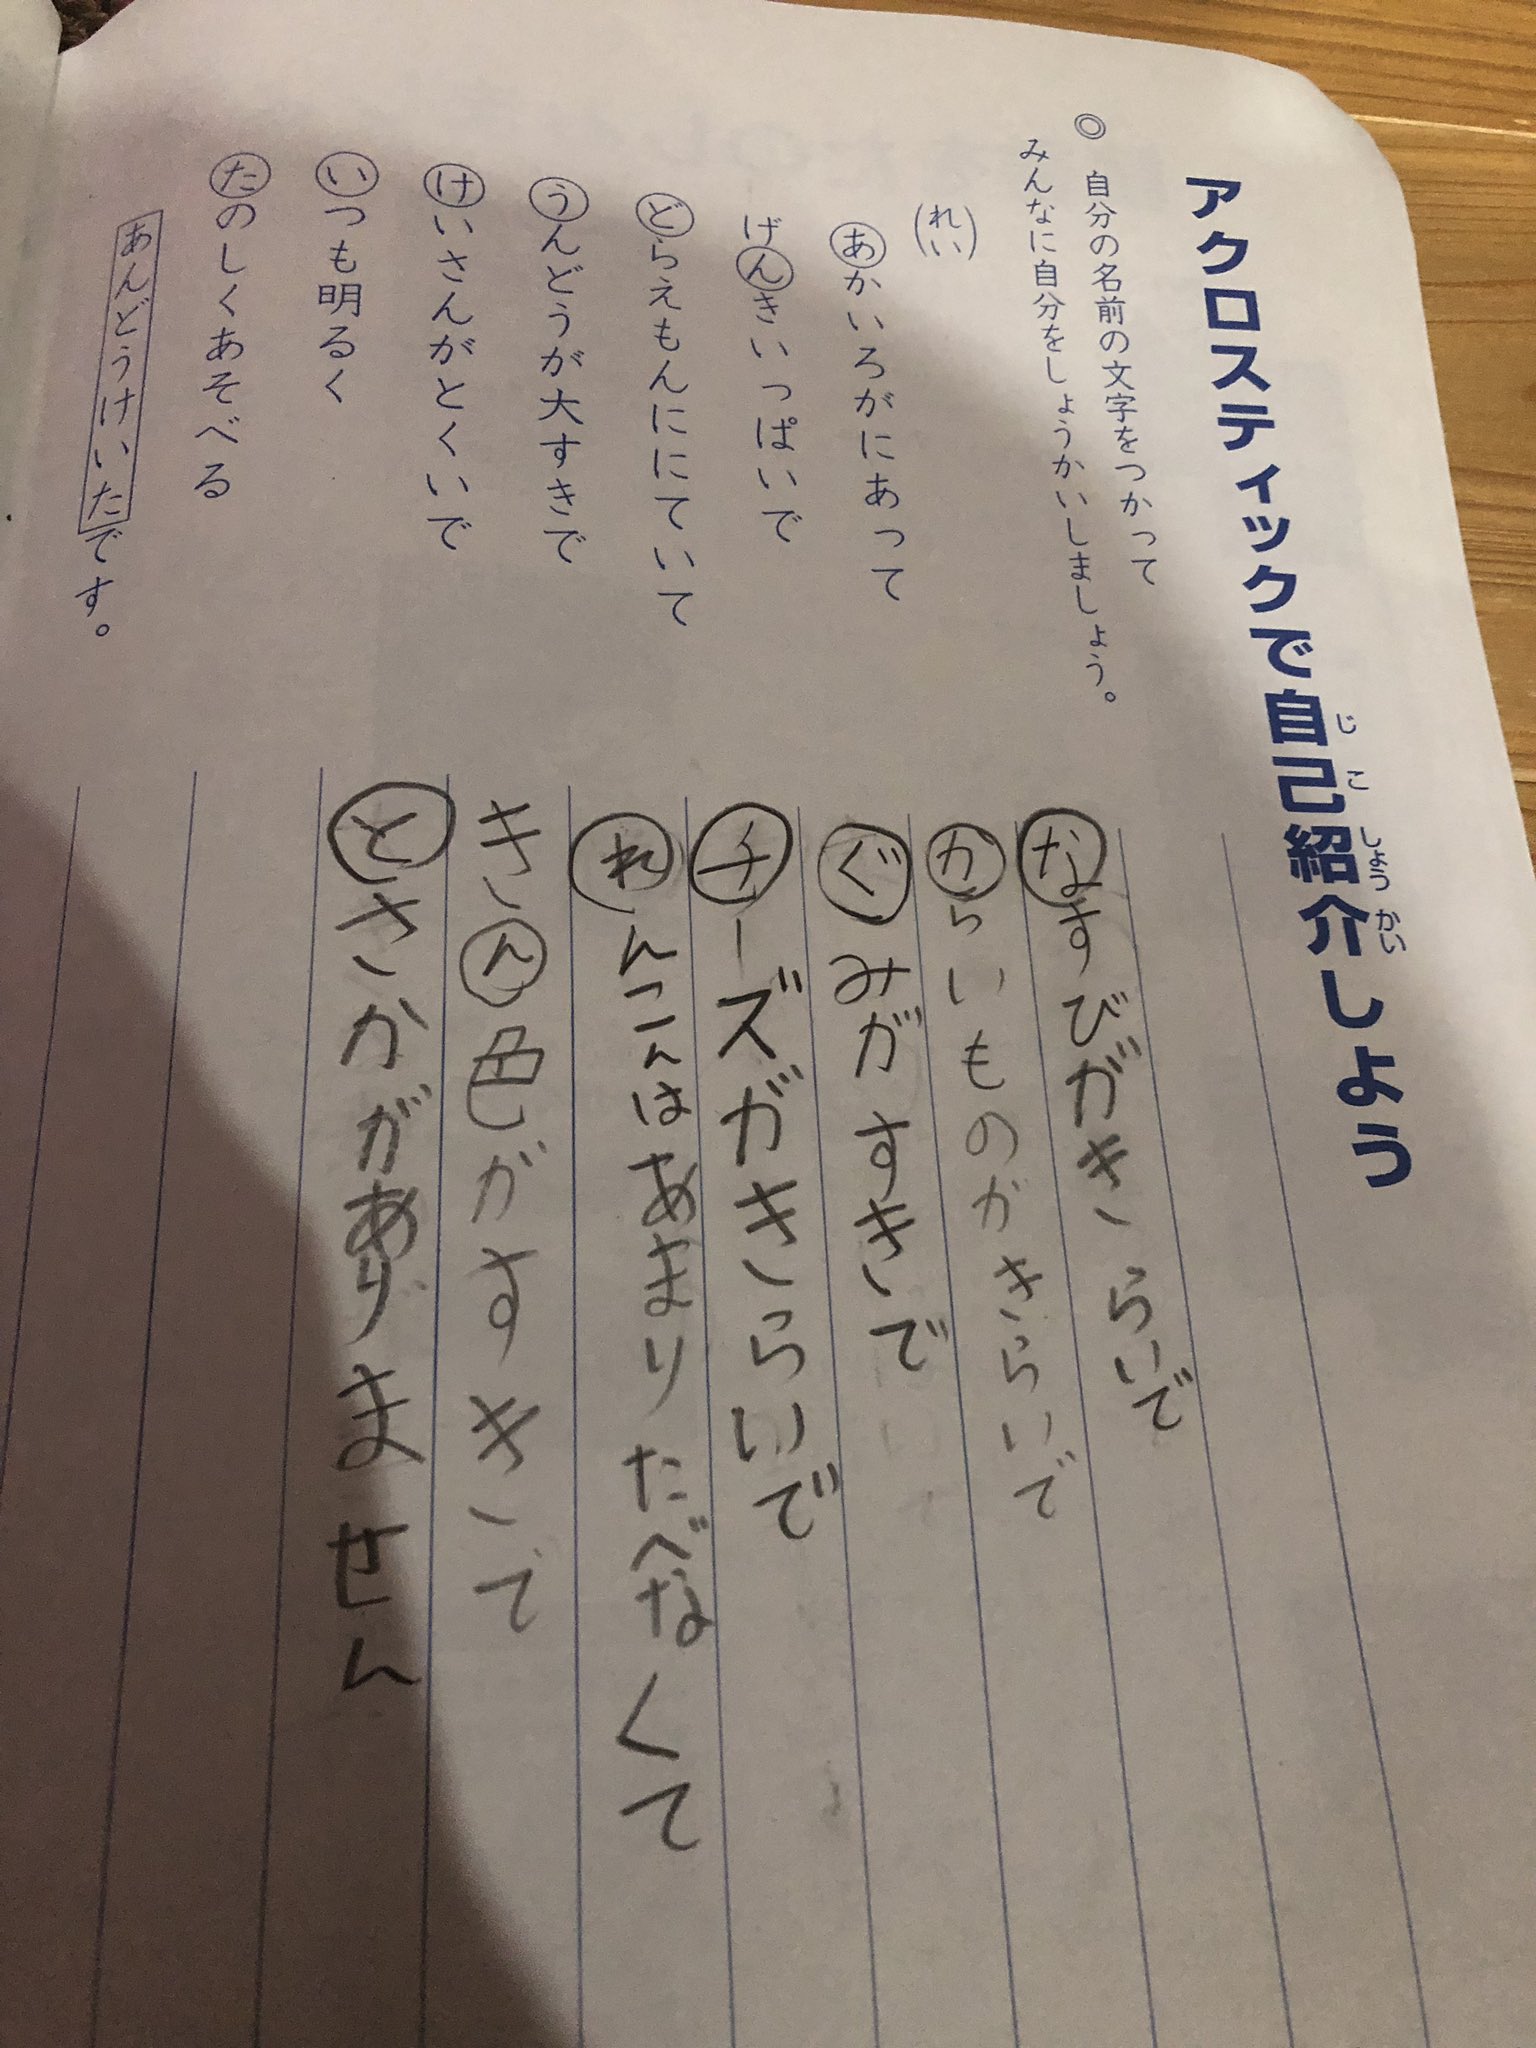 アクロスティックで自己紹介しよう
じこしょうかい
◎ 自分の名前の文字をつかって
みんなに自分をしょうかいしましょう。
(れい)
あかいろがにあって
げんきいっぱいで
どらえもんににていて
うんどうが大すきで
けいさんがとくいで
いつも明るく
たのしくあそべる
あんどうけいたです。
なすびがきらいで
からいものがきらいで
ぐみがすきで
チーズガきらいで
れんこんはあまりたべなくて
きん色がすきで
とさかがありません